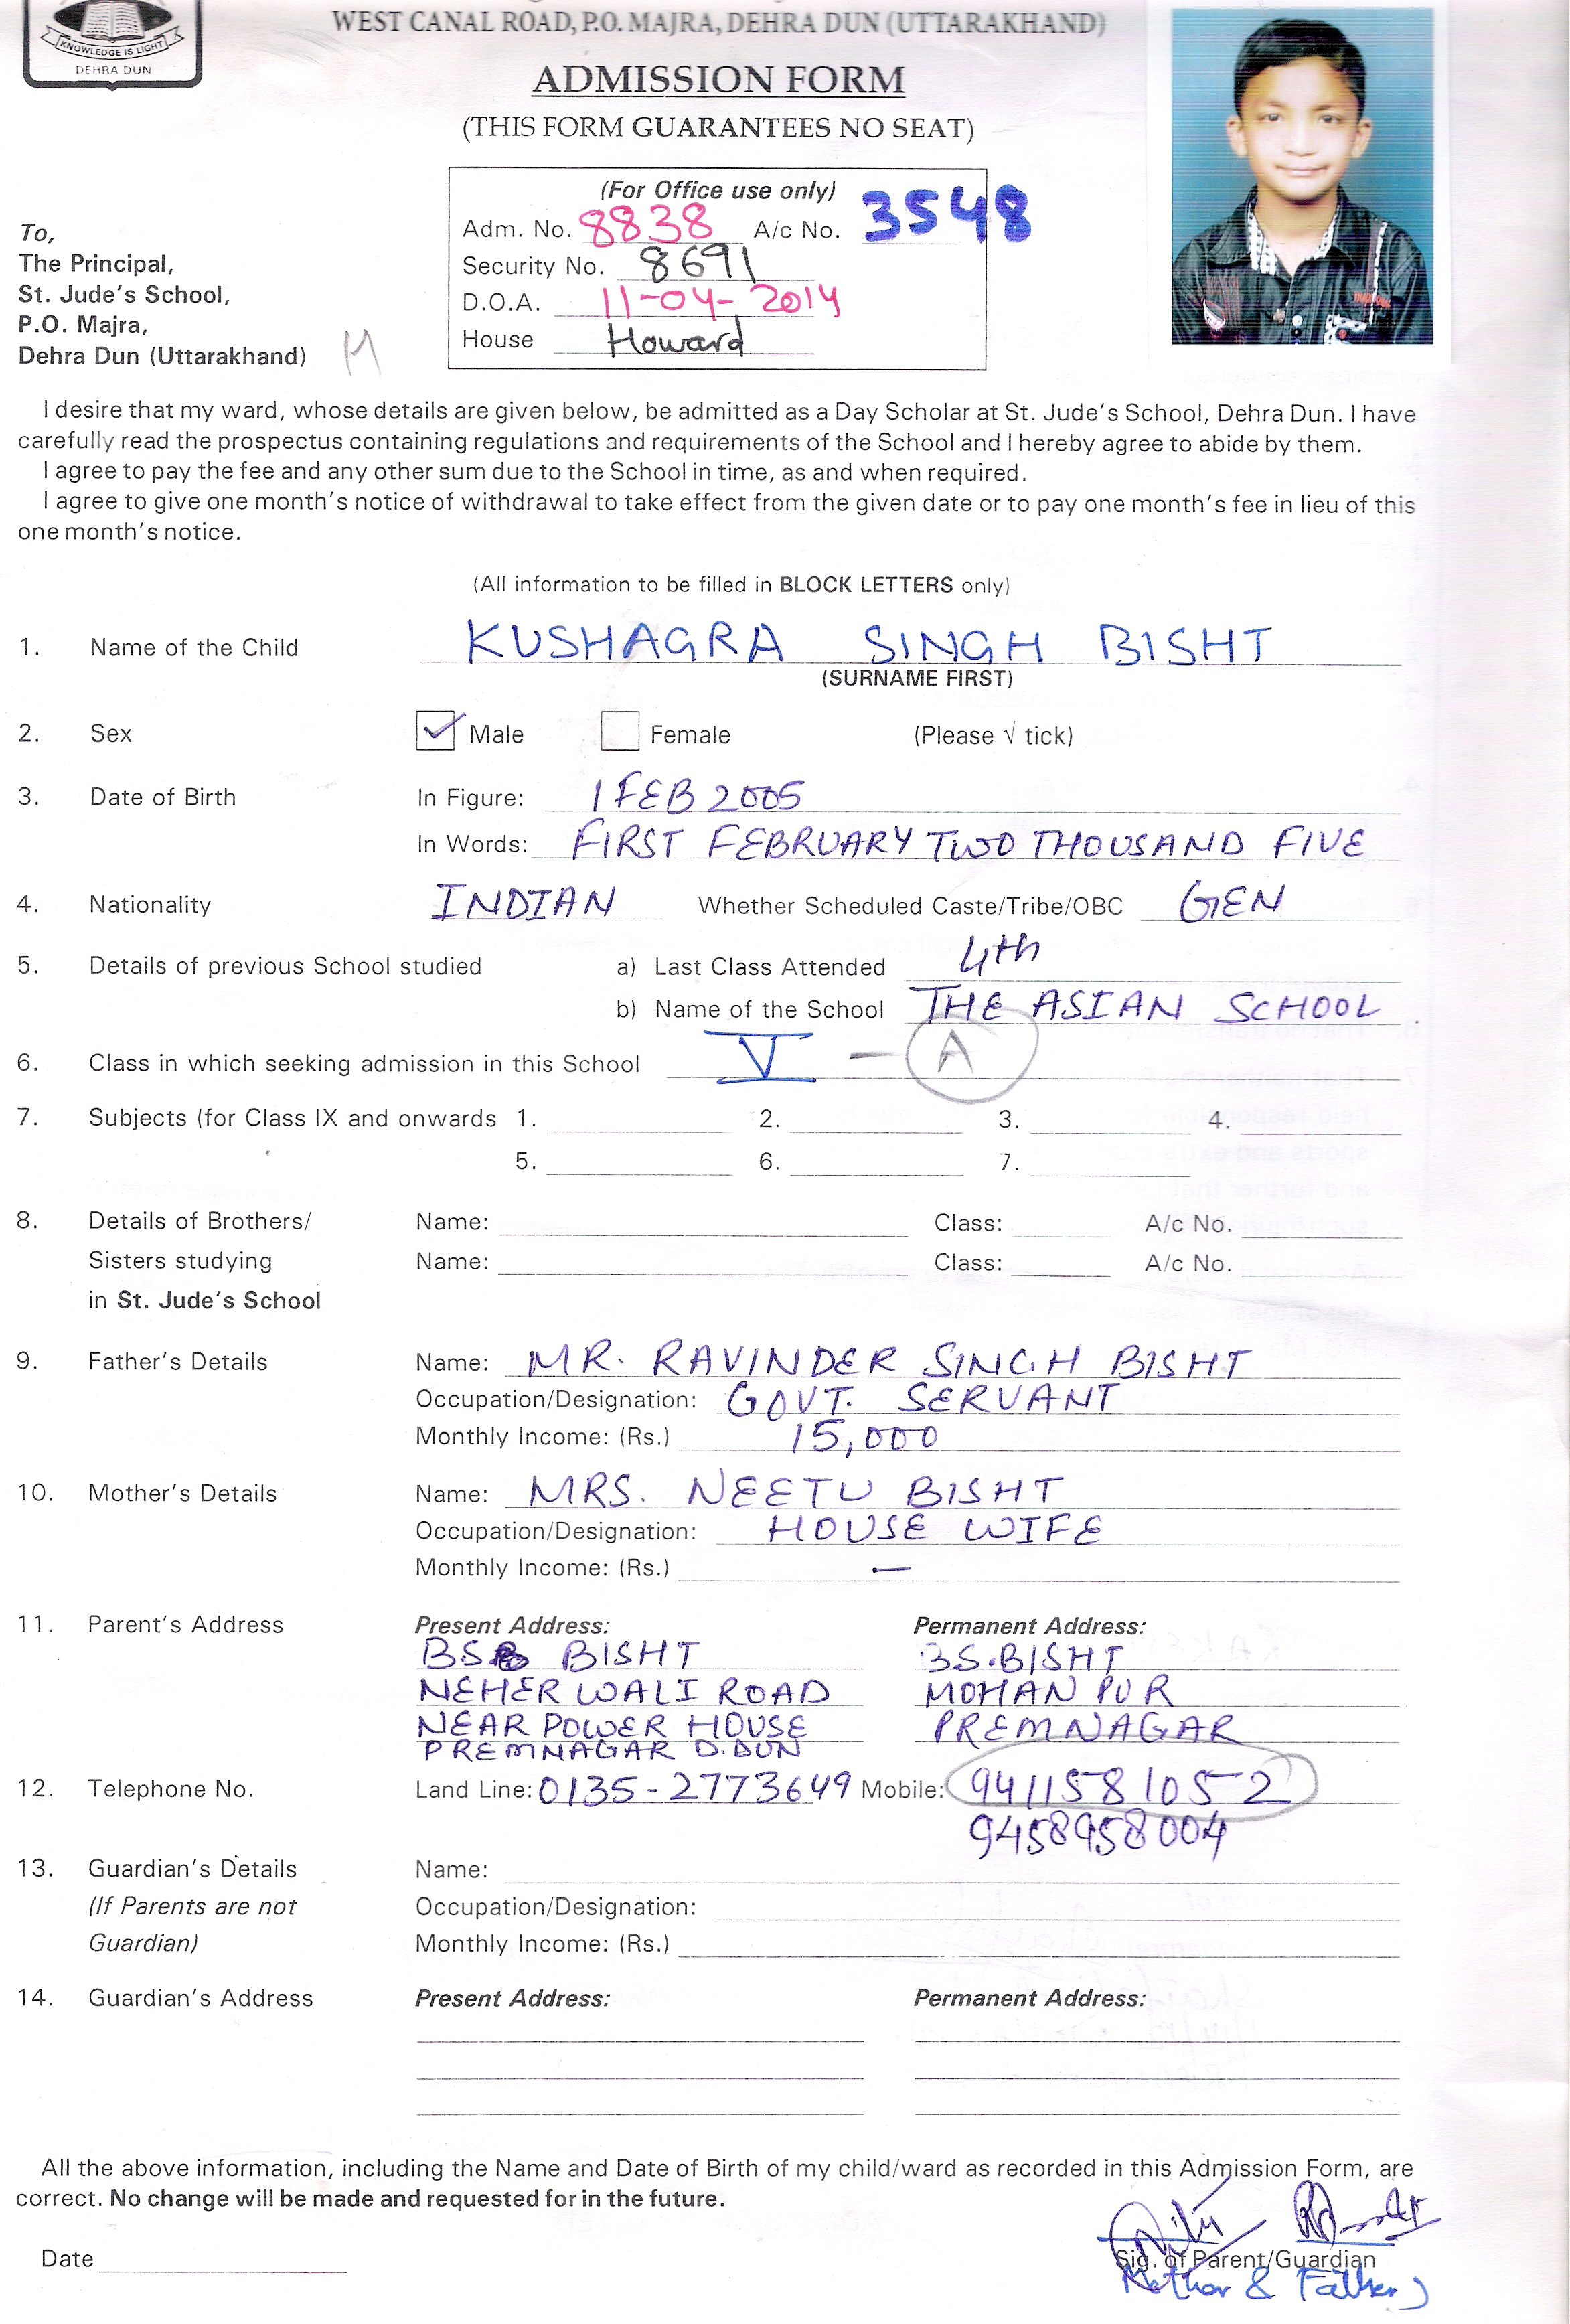 KNOWLEDGE IS LIGHT
DEHRA DUN
WEST CANAL ROAD, P.O. MAJRA, DEHRA DUN (UTTARAKHAND)
ADMISSION FORM
(THIS FORM GUARANTEES NO SEAT)
(For Office use only)
Adm. No. 8838 A/c No. 3548
Security No. 8691
D.O.A. 11-04-2014
House Howard
To,
The Principal,
St. Jude's School,
P.O. Majra,
Dehra Dun (Uttarakhand) M
I desire that my ward, whose details are given below, be admitted as a Day Scholar at St. Jude's School, Dehra Dun. I have
carefully read the prospectus containing regulations and requirements of the School and I hereby agree to abide by them.
I agree to pay the fee and any other sum due to the School in time, as and when required.
I agree to give one month's notice of withdrawal to take effect from the given date or to pay one month's fee in lieu of this
one month's notice.
(All information to be filled in BLOCK LETTERS only)
1. Name of the Child KUSHAGRA SINGH BISHT
(SURNAME FIRST)
2. Sex ✓ Male Female (Please √ tick)
3. Date of Birth In Figure: 1 FEB 2005
In Words: FIRST FEBRUARY TWO THOUSAND FIVE
4. Nationality INDIAN Whether Scheduled Caste/Tribe/OBC GEN
5. Details of previous School studied a) Last Class Attended 4th
b) Name of the School THE ASIAN SCHOOL
6. Class in which seeking admission in this School V - A
7. Subjects (for Class IX and onwards 1. 2. 3. 4.
5. 6. 7.
8. Details of Brothers/ Name: Class: A/c No.
Sisters studying Name: Class: A/c No.
in St. Jude's School
9. Father's Details Name: MR. RAVINDER SINGH BISHT
Occupation/Designation: GOVT. SERVANT
Monthly Income: (Rs.) 15,000
10. Mother's Details Name: MRS. NEETU BISHT
Occupation/Designation: HOUSE WIFE
Monthly Income: (Rs.) —
11. Parent's Address Present Address: Permanent Address:
B.S. BISHT B.S. BISHT
NEHER WALI ROAD MOHAN PUR
NEAR POWER HOUSE PREMNAGAR
PREMNAGAR D.DUN
12. Telephone No. Land Line: 0135-2773649 Mobile: 9411581052
9458958004
13. Guardian's Details Name:
(If Parents are not Occupation/Designation:
Guardian) Monthly Income: (Rs.)
14. Guardian's Address Present Address: Permanent Address:
All the above information, including the Name and Date of Birth of my child/ward as recorded in this Admission Form, are
correct. No change will be made and requested for in the future.
Date Sig. of Parent/Guardian
Mother & Father)